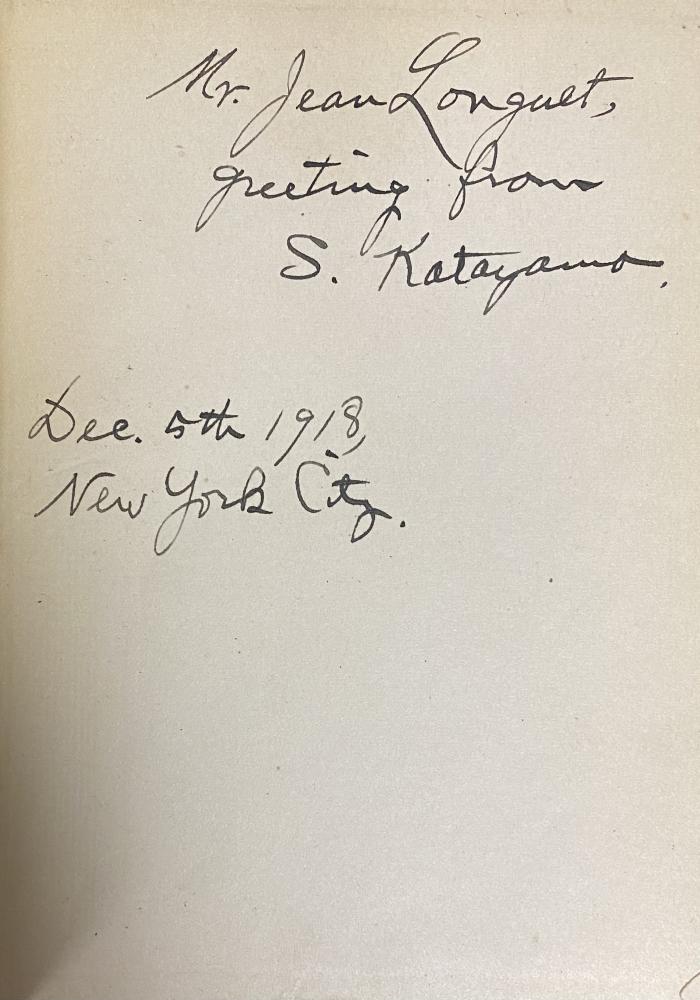 Mr. Jean Longuet,
greeting from
S. Katayama.
Dec. 5th 1918,
New York City.